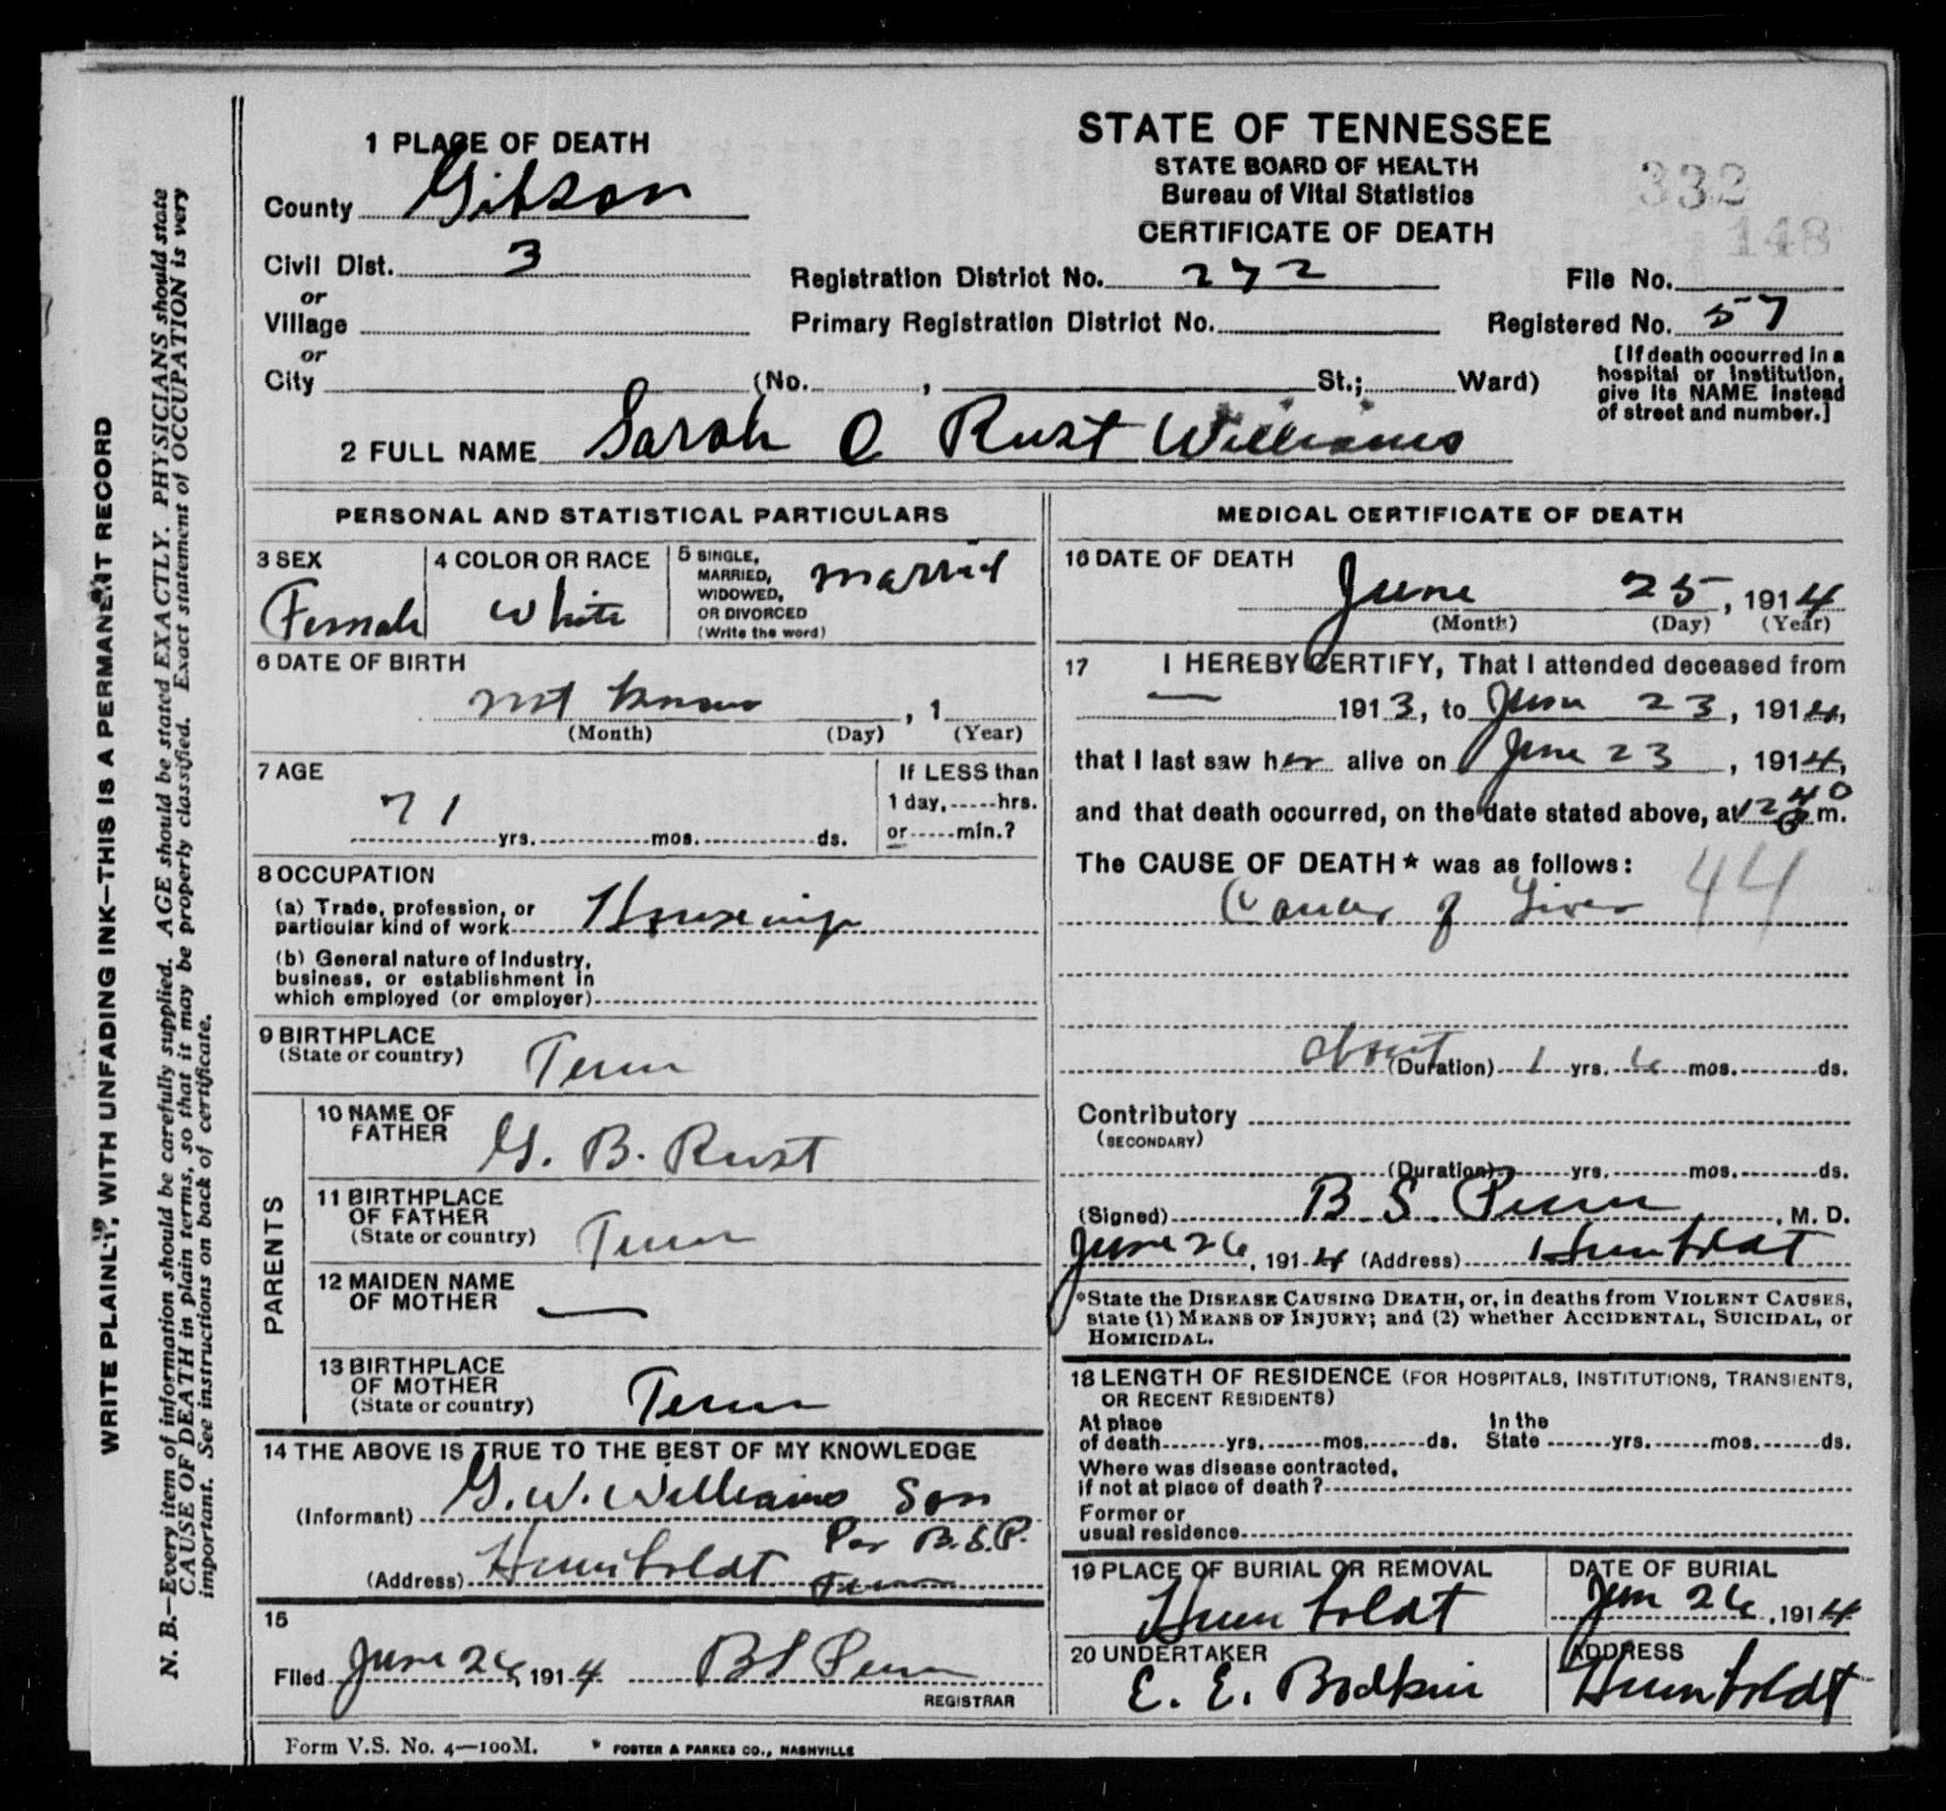 WRITE PLAINLY, WITH UNFADING INK—THIS IS A PERMANENT RECORD
N. B.—Every item of information should be carefully supplied. AGE should be stated EXACTLY. PHYSICIANS should state
CAUSE OF DEATH in plain terms, so that it may be properly classified. Exact statement of OCCUPATION is very
important. See instructions on back of certificate.
1 PLACE OF DEATH
County Gibson
Civil Dist. 3
or
Village
or
City (No. , St.; Ward)
STATE OF TENNESSEE
STATE BOARD OF HEALTH
Bureau of Vital Statistics
CERTIFICATE OF DEATH
332
148
Registration District No. 272
File No.
Primary Registration District No.
Registered No. 57
[If death occurred in a
hospital or institution,
give its NAME instead
of street and number.]
2 FULL NAME Sarah C Rust Williams
PERSONAL AND STATISTICAL PARTICULARS
3 SEX
Female
4 COLOR OR RACE
White
5 SINGLE,
MARRIED,
WIDOWED,
OR DIVORCED
(Write the word)
married
6 DATE OF BIRTH
not known
, 1
(Month) (Day) (Year)
7 AGE
71 yrs. mos. ds.
If LESS than
1 day, hrs.
or min.?
8 OCCUPATION
(a) Trade, profession, or
particular kind of work
(b) General nature of industry,
business, or establishment in
which employed (or employer)
9 BIRTHPLACE
(State or country) Tenn
PARENTS
10 NAME OF
FATHER G. B. Rust
11 BIRTHPLACE
OF FATHER
(State or country) Tenn
12 MAIDEN NAME
OF MOTHER —
13 BIRTHPLACE
OF MOTHER
(State or country) Tenn
14 THE ABOVE IS TRUE TO THE BEST OF MY KNOWLEDGE
(Informant) G. W. Williams Son
Per B.S.P.
(Address) Humboldt Tenn
15
Filed June 26 1914 B S Penn
REGISTRAR
MEDICAL CERTIFICATE OF DEATH
16 DATE OF DEATH
June 25, 1914
(Month) (Day) (Year)
17 I HEREBY CERTIFY, That I attended deceased from
— 1913, to June 23, 1914,
that I last saw her alive on June 23, 1914,
and that death occurred, on the date stated above, at 12 40 m.
The CAUSE OF DEATH* was as follows:
Cancer of Liver 44
about (Duration) 1 yrs. 6 mos. ds.
Contributory
(SECONDARY)
(Duration) yrs. mos. ds.
(Signed) B. S. Penn, M. D.
June 26, 1914 (Address) Humboldt
*State the DISEASE CAUSING DEATH, or, in deaths from VIOLENT CAUSES,
state (1) MEANS OF INJURY; and (2) whether ACCIDENTAL, SUICIDAL, or
HOMICIDAL.
18 LENGTH OF RESIDENCE (FOR HOSPITALS, INSTITUTIONS, TRANSIENTS,
OR RECENT RESIDENTS)
At place In the
of death yrs. mos. ds. State yrs. mos. ds.
Where was disease contracted,
if not at place of death?
Former or
usual residence
19 PLACE OF BURIAL OR REMOVAL
Humboldt
DATE OF BURIAL
Jun 26, 1914
20 UNDERTAKER
E. E. Bodkin
ADDRESS
Humboldt
Form V.S. No. 4—100M. * FOSTER & PARKES CO., NASHVILLE